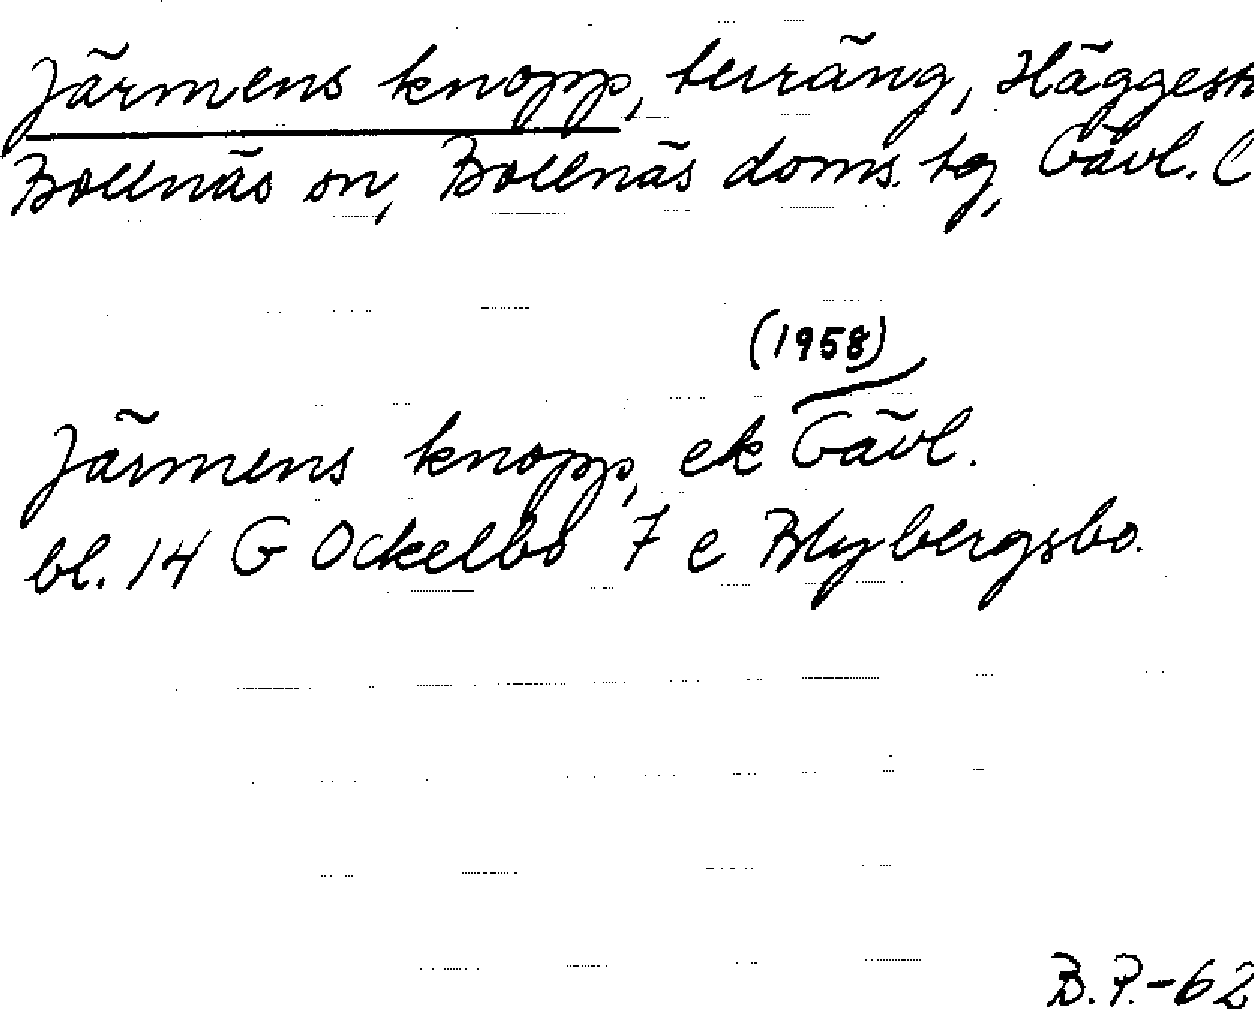 Järmens knopp, terräng, Häggest
Bollnäs sn, Bollnäs doms. tg, Gävl.
(1958)
Järmens knopp, ek Gävl.
bl. 14 G Ockelbo 7 e Blybergsbo.
B.P.-62